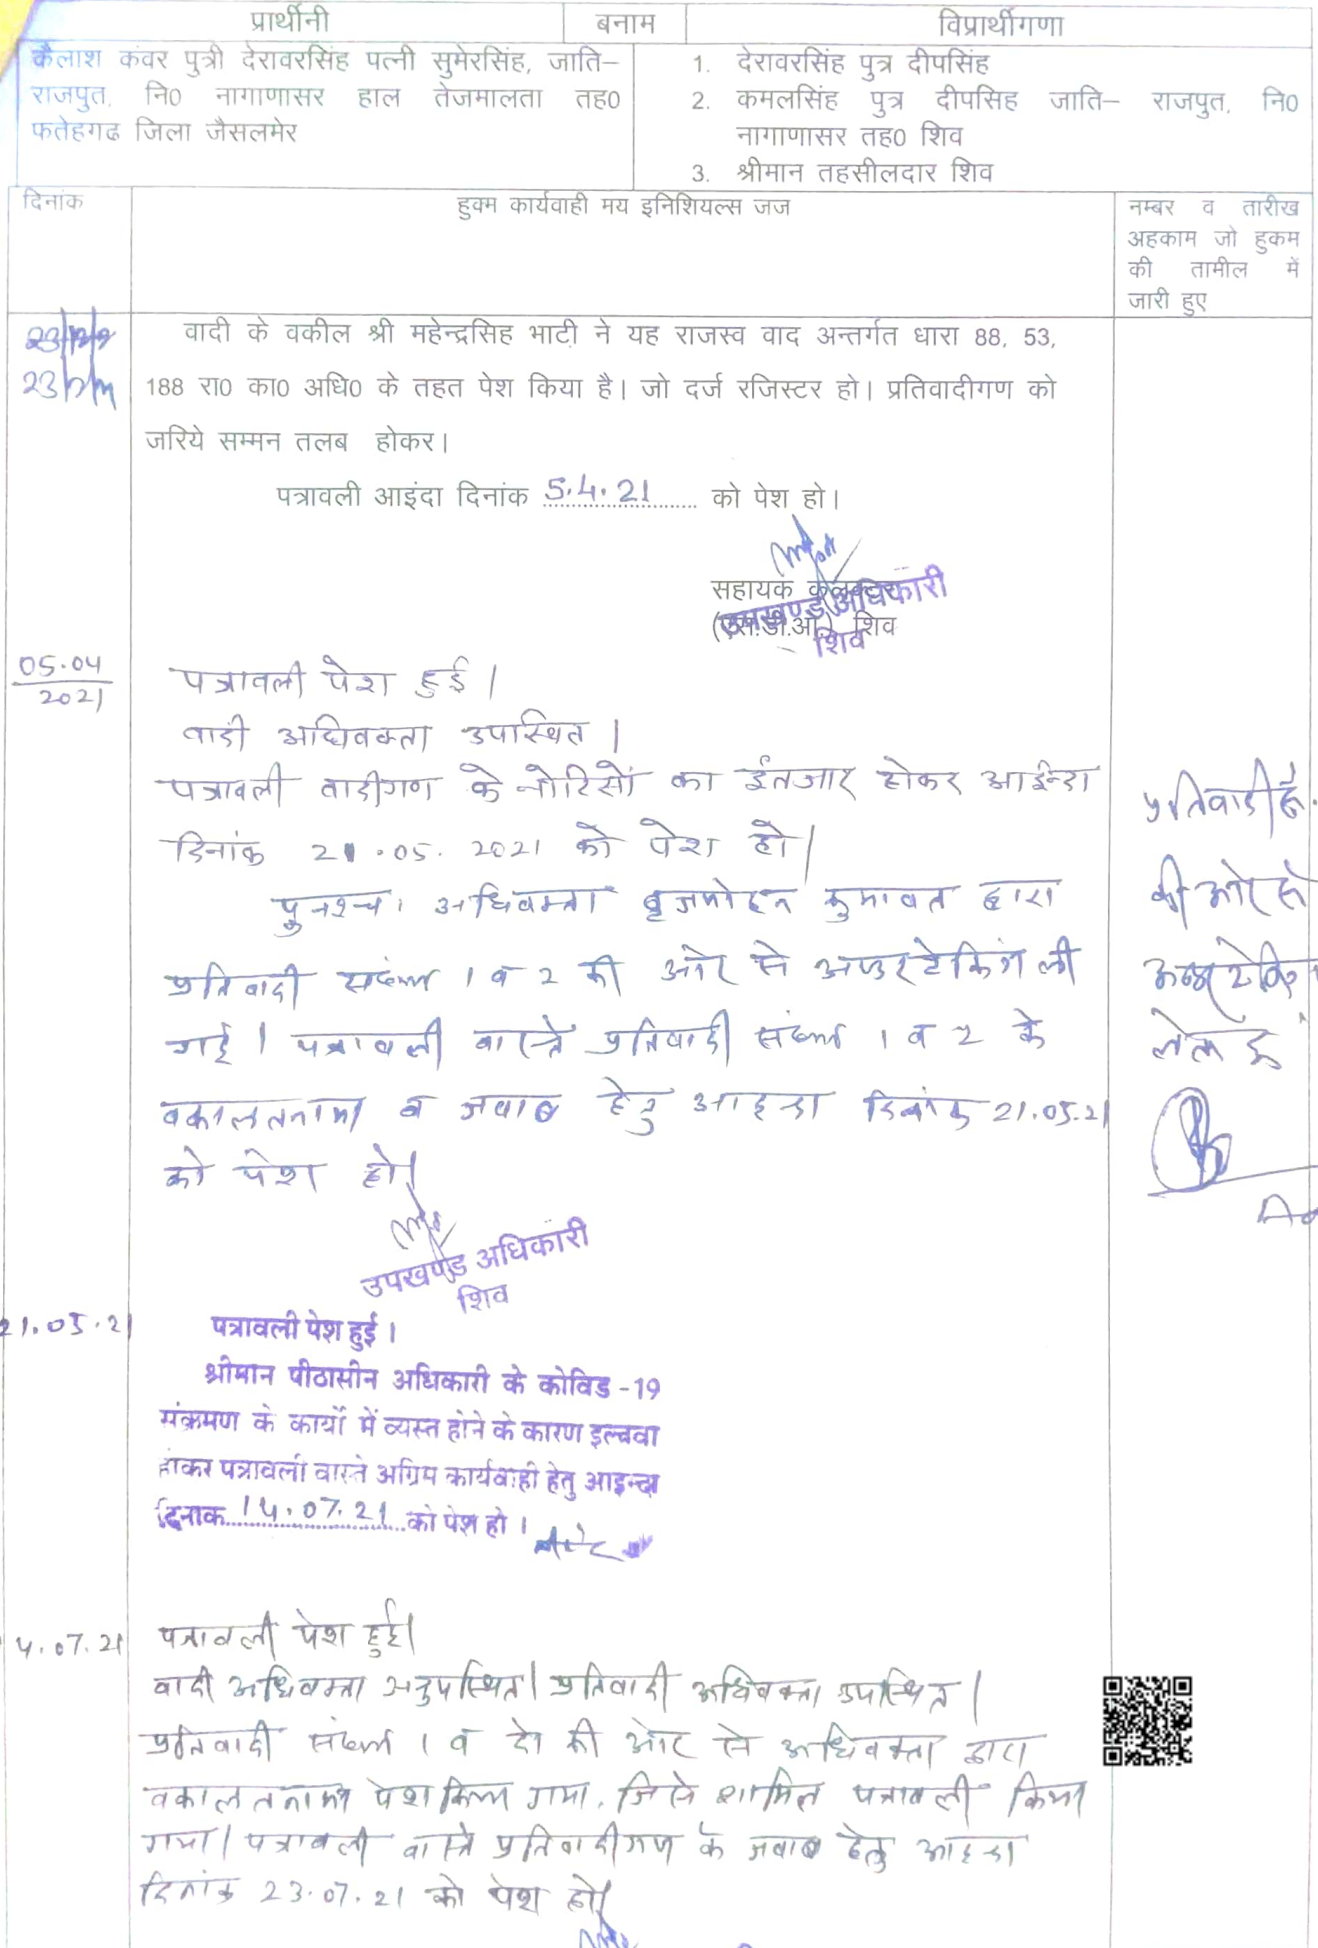 प्रार्थीनी बनाम विप्रार्थीगणा
कैलाश कंवर पुत्री देरावरसिंह पत्नी सुमेरसिंह, जाति–
राजपुत, नि0 नागाणासर हाल तेजमालता तह0
फतेहगढ जिला जैसलमेर
1. देरावरसिंह पुत्र दीपसिंह
2. कमलसिंह पुत्र दीपसिह जाति– राजपुत, नि0
नागाणासर तह0 शिव
3. श्रीमान तहसीलदार शिव
दिनांक
हुक्म कार्यवाही मय इनिशियल्स जज
नम्बर व तारीख
अहकाम जो हुकम
की तामील में
जारी हुए
वादी के वकील श्री महेन्द्रसिह भाटी ने यह राजस्व वाद अन्तर्गत धारा 88, 53,
188 रा0 का0 अधि0 के तहत पेश किया है। जो दर्ज रजिस्टर हो। प्रतिवादीगण को
जरिये सम्मन तलब होकर।
पत्रावली आइंदा दिनांक 5.4.21 को पेश हो।
सहायक कलक्टर
उपखण्ड अधिकारी
(एस.डी.ओ) शिव
शिव
05.04
2021
पत्रावली पेश हुई।
वादी अधिवक्ता उपस्थित।
पत्रावली वादीगण के नोटिसों का ईंतजार होकर आईन्दा
दिनांक 21.05.2021 को पेश हो।
पुनश्च। अधिवक्ता बृजमोहन कुमावत द्वारा
प्रतिवादी संख्या 1 व 2 की ओर से अण्डरटेकिंग ली
गई। पत्रावली वास्ते प्रतिवादी संख्या 1 व 2 के
वकालतनामा व जवाब हेतु आइन्दा दिनांक 21.05.21
को पेश हो।
प्रतिवादी
की ओर से
अण्डरटेकिंग
लेता हूँ
उपखण्ड अधिकारी
शिव
21.05.21
पत्रावली पेश हुई।
श्रीमान पीठासीन अधिकारी के कोविड -19
संक्रमण के कार्यो में व्यस्त होने के कारण इल्तवा
होकर पत्रावली वास्ते अग्रिम कार्यवाही हेतु आइन्दा
दिनांक 14.07.21 को पेश हो।
4.07.21
पत्रावली पेश हुई।
वादी अधिवक्ता अनुपस्थित। प्रतिवादी अधिवक्ता उपस्थित।
प्रतिवादी संख्या 1 व दो की ओर से अधिवक्ता द्वारा
वकालतनामा पेश किया गया, जिसे शामिल पत्रावली किया
गया। पत्रावली वास्ते प्रतिवादीगण के जवाब हेतु आइन्दा
दिनांक 23.07.21 को पेश हो।